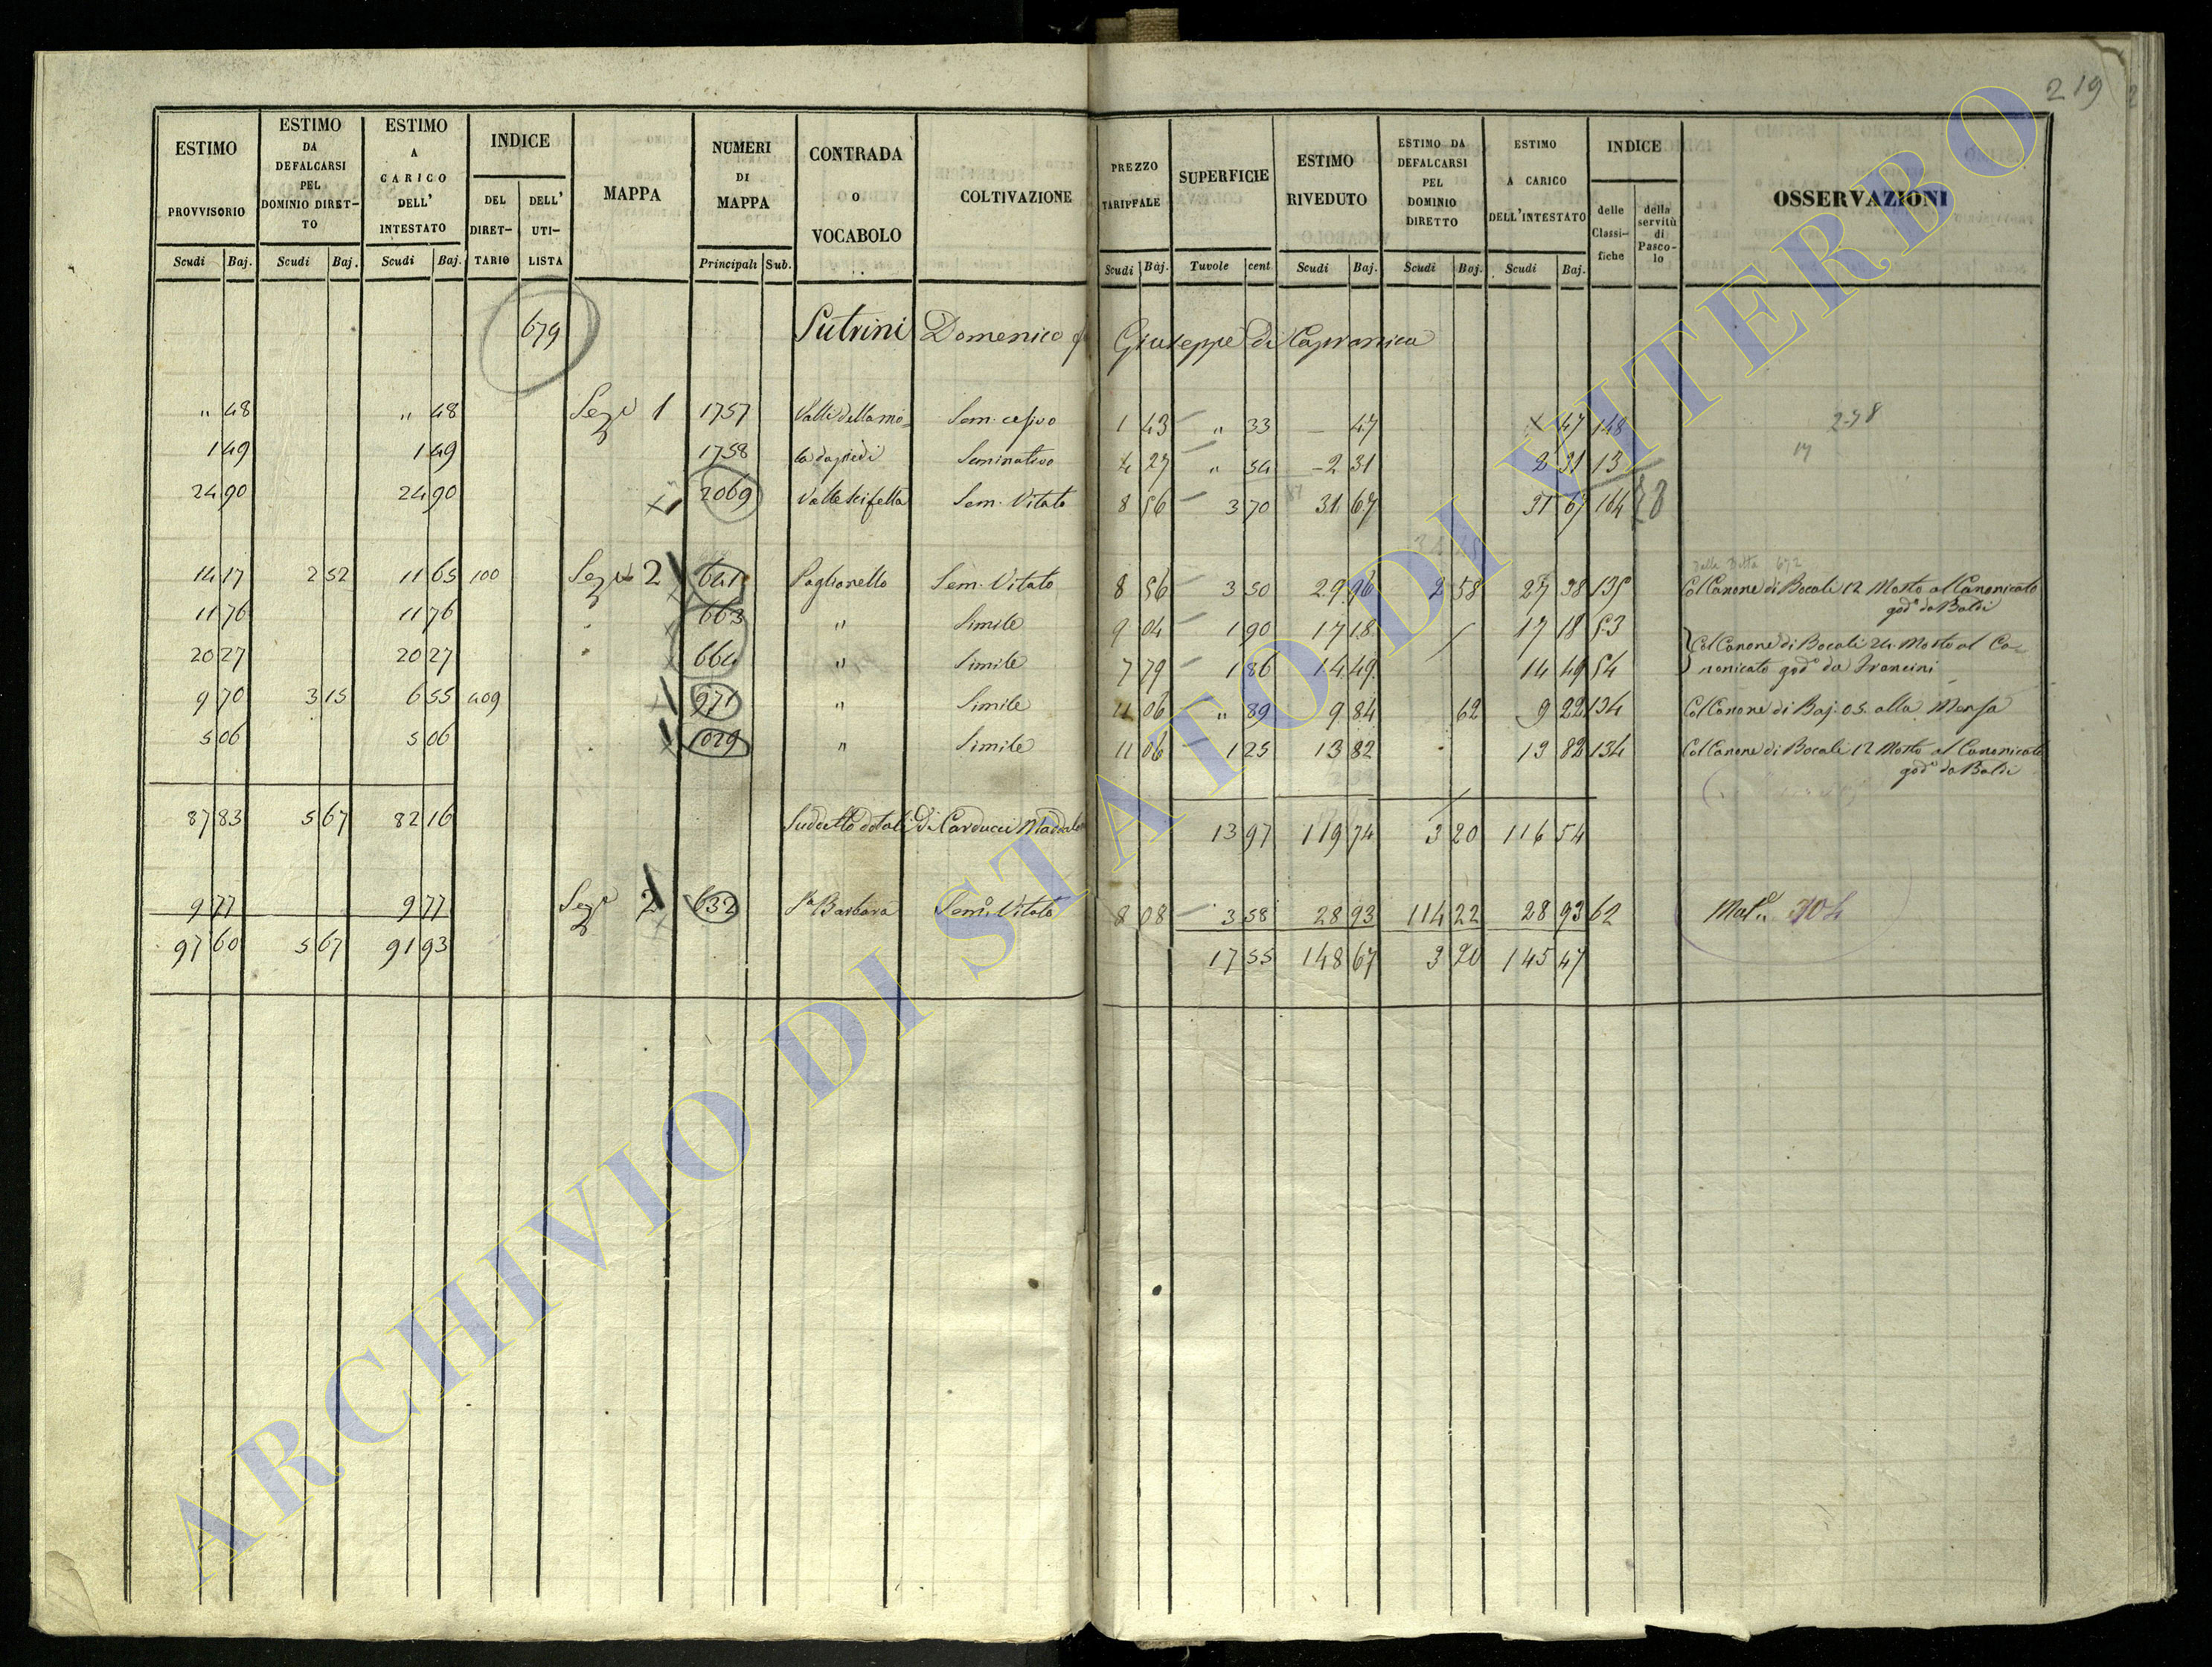 219
ESTIMO PROVVISORIO
ESTIMO DA DEFALCARSI PEL DOMINIO DIRETTO
ESTIMO A CARICO DELL' INTESTATO
INDICE
DEL DIRETTARIO
DELL' UTILISTA
MAPPA
NUMERI DI MAPPA
CONTRADA O VOCABOLO
COLTIVAZIONE
PREZZO TARIFFALE
SUPERFICIE
ESTIMO RIVEDUTO
ESTIMO DA DEFALCARSI PEL DOMINIO DIRETTO
ESTIMO A CARICO DELL'INTESTATO
INDICE
delle Classifiche
della servitù di Pascolo
OSSERVAZIONI
Scudi Baj. Scudi Baj. Scudi Baj. Principali Sub. Scudi Baj. Tavole cent Scudi Baj. Scudi Baj. Scudi Baj.
679 Sutrini Domenico Giuseppe di Capranica
" 48 " 48 Sez 1 1757 1 43 " 33 47 47 148 278
1 49 1 49 1758 Seminativo 4 27 " 54 2 31 2 31 13
24 90 24 90 2069 Valle Scifella Sem. Vitato 8 56 3 70 31 67 31 67 104
14 17 2 52 11 65 100 Sez 2 641 Paglianello Sem. Vitato 8 56 3 50 29 96 2 58 27 38 135 Col Canone di Bocali 12 Mosto al Canonicato
god° da Baldi
11 76 11 76 663 " Simile 9 04 1 90 17 18 17 18 53 Col Canone di Bocali 24 Mosto al Ca-
20 27 20 27 664 " Simile 7 79 1 86 14 49 14 49 54 nonicato god° da Francini
9 70 3 15 6 55 409 971 " Simile 11 06 " 89 9 84 62 9 22 134 Col Canone di Baj. 05 alla Mensa
5 06 5 06 1029 " Simile 11 06 1 25 13 82 13 82 134 Col Canone di Bocali 12 Mosto al Canonicato
god° da Baldi
87 83 5 67 82 16 Sudetto dotali di Carducci Maddalena 13 97 119 74 3 20 116 54
9 77 9 77 Sez 2 632 Sa Barbara Sem. Vitato 8 08 3 58 28 93 114 22 28 93 62 704
97 60 5 67 91 93 17 55 148 67 3 20 145 47
ARCHIVIO DI STATO DI VITERBO